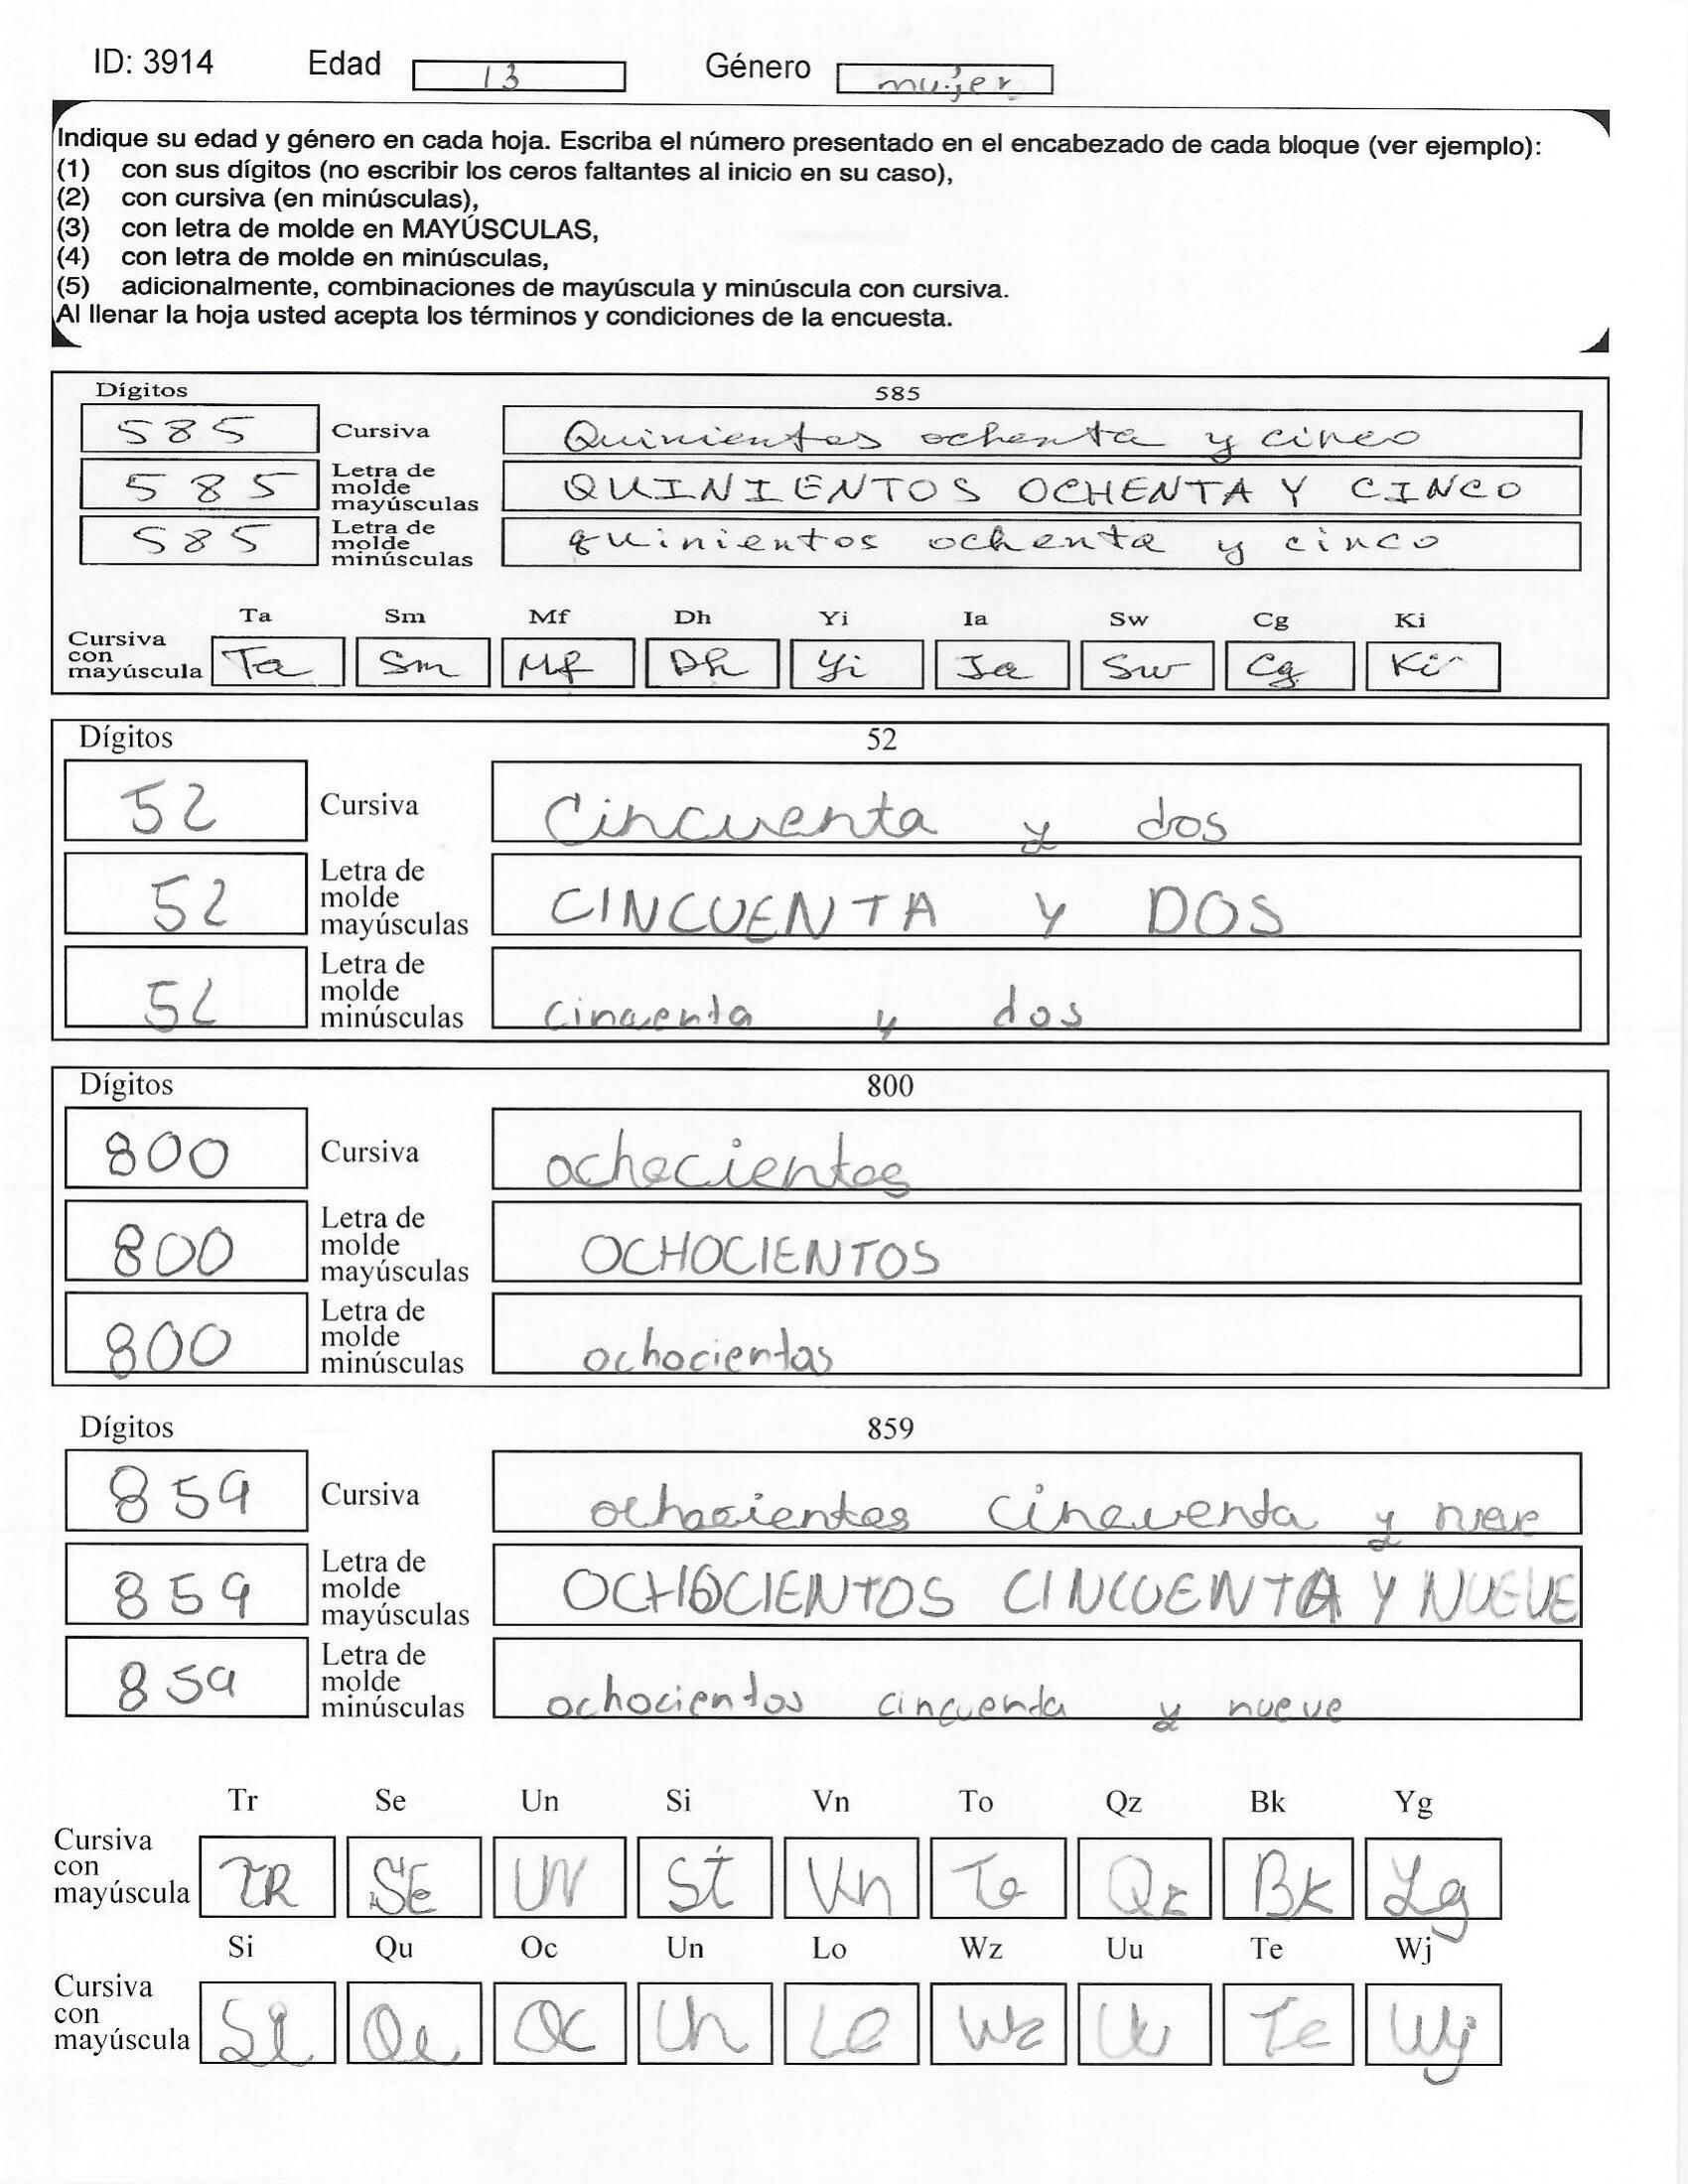 ID: 3914 Edad 13 Género mujer
Indique su edad y género en cada hoja. Escriba el número presentado en el encabezado de cada bloque (ver ejemplo):
(1) con sus dígitos (no escribir los ceros faltantes al inicio en su caso),
(2) con cursiva (en minúsculas),
(3) con letra de molde en MAYÚSCULAS,
(4) con letra de molde en minúsculas,
(5) adicionalmente, combinaciones de mayúscula y minúscula con cursiva.
Al llenar la hoja usted acepta los términos y condiciones de la encuesta.
Dígitos 585
585 Cursiva Quinientos ochenta y cinco
585 Letra de molde mayúsculas QUINIENTOS OCHENTA Y CINCO
585 Letra de molde minúsculas quinientos ochenta y cinco
Ta Sm Mf Dh Yi Ia Sw Cg Ki
Cursiva con mayúscula Ta Sm Mf Dh Yi Ia Sw Cg Ki
Dígitos 52
52 Cursiva Cincuenta y dos
52 Letra de molde mayúsculas CINCUENTA Y DOS
52 Letra de molde minúsculas cincuenta y dos
Dígitos 800
800 Cursiva ochocientos
800 Letra de molde mayúsculas OCHOCIENTOS
800 Letra de molde minúsculas ochocientos
Dígitos 859
859 Cursiva ochocientos cincuenta y nueve
859 Letra de molde mayúsculas OCHOCIENTOS CINCUENTA Y NUEVE
859 Letra de molde minúsculas ochocientos cincuenta y nueve
Tr Se Un Si Vn To Qz Bk Yg
Cursiva con mayúscula TR SE UN Si Vn To Qz Bk Yg
Si Qu Oc Un Lo Wz Uu Te Wj
Cursiva con mayúscula Si Qu Oc Un Lo Wz Uu Te Wj